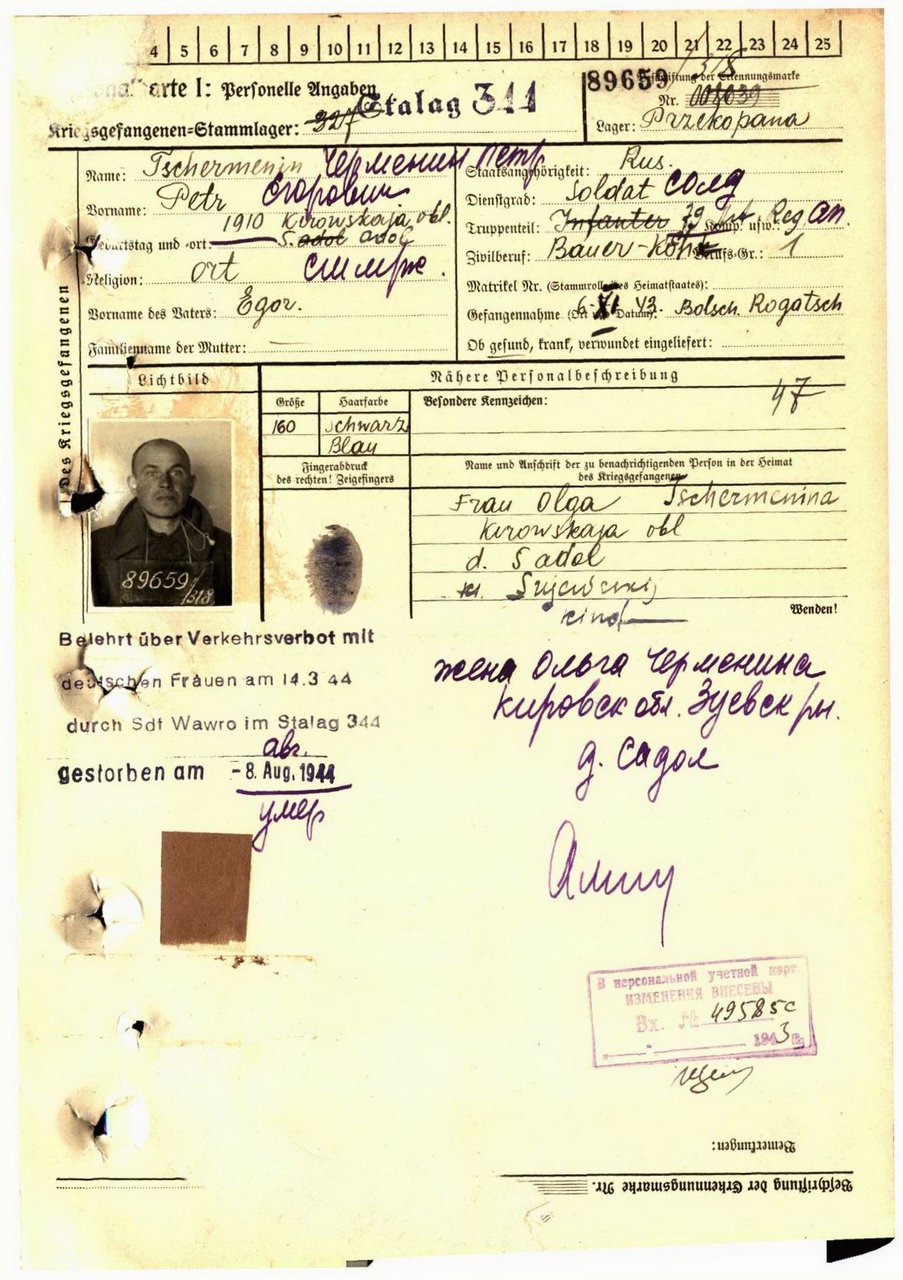 4 5 6 7 8 9 10 11 12 13 14 15 16 17 18 19 20 21 22 23 24 25
arte I: Personelle Angaben
Kriegsgefangenen=Stammlager: 327 Stalag 344
89659 /318
Beschriftung der Erkennungsmarke
Nr.
Lager: Przekopana
Des Kriegsgefangenen
Name: Tschermenin Черменин Петр
Vorname: Petr Егорович
Geburtstag und =ort: 1910 Kirowskaja obl.
S. adol adol
Religion: ort
Vorname des Vaters: Egor.
Familienname der Mutter: —
Staatsangehörigkeit: Rus.
Dienstgrad: Soldat солд
Truppenteil: Infanter 79 Komp. usw.: Reg
Zivilberuf: Bauer- Berufs=Gr.: 1
Matrikel Nr. (Stammrolle des Heimatstaates):
Gefangennahme (Ort und Datum): 6. XI. 43. Bolsch Rogatsch
Ob gesund, krank, verwundet eingeliefert:
Lichtbild
Nähere Personalbeschreibung
Größe Haarfarbe Besondere Kennzeichen: 47
160 schwarz
Blau
Fingerabdruck
des rechten! Zeigefingers
Name und Anschrift der zu benachrichtigenden Person in der Heimat
des Kriegsgefangenen
Frau Olga Tschermenina
Kirowskaja obl
d. Sadol
89659/
/318
Wenden!
Belehrt über Verkehrsverbot mit
deutschen Frauen am 14.3 44
durch Sdf Wawro im Stalag 344
авг.
gestorben am - 8. Aug. 1944
умер
жена Ольга Черменина
Кировск обл. Зуевск рн.
д. Садол
В персональной учетной карт
ИЗМЕНЕНИЯ ВНЕСЕНЫ
Вх. № 49585с
1943 г.
Bemerkungen:
Beschriftung der Erkennungsmarke Nr.